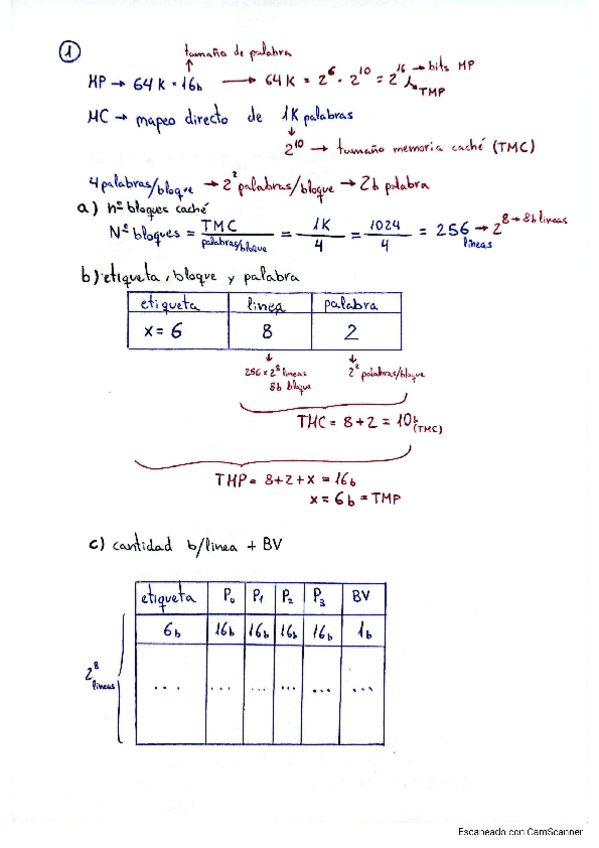 1
tamaño de palabra
MP → 64K · 16b → 64K = 2^6 · 2^10 = 2^16 → bits MP
TMP
MC → mapeo directo de 1K palabras
2^10 → tamaño memoria caché (TMC)
4 palabras/bloque → 2^2 palabras/bloque → 2b palabra
a) nº bloques caché
Nº bloques = TMC / palabras/bloque = 1K / 4 = 1024 / 4 = 256 lineas → 2^8 → 8b lineas
b) etiqueta, bloque y palabra
etiqueta linea palabra
x = 6 8 2
256 = 2^8 lineas 2^2 palabras/bloque
8b bloque
TMC = 8 + 2 = 10b (TMC)
TMP = 8 + 2 + x = 16b
x = 6b = TMP
c) cantidad b/linea + BV
etiqueta P0 P1 P2 P3 BV
6b 16b 16b 16b 16b 1b
2^8 lineas
.... ... ... ... ... ...
Escaneado con CamScanner